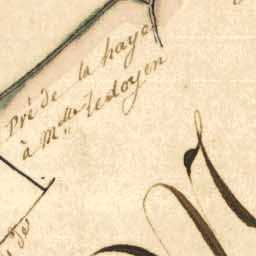 Pré de la haye
à M.lle ledoyen
de